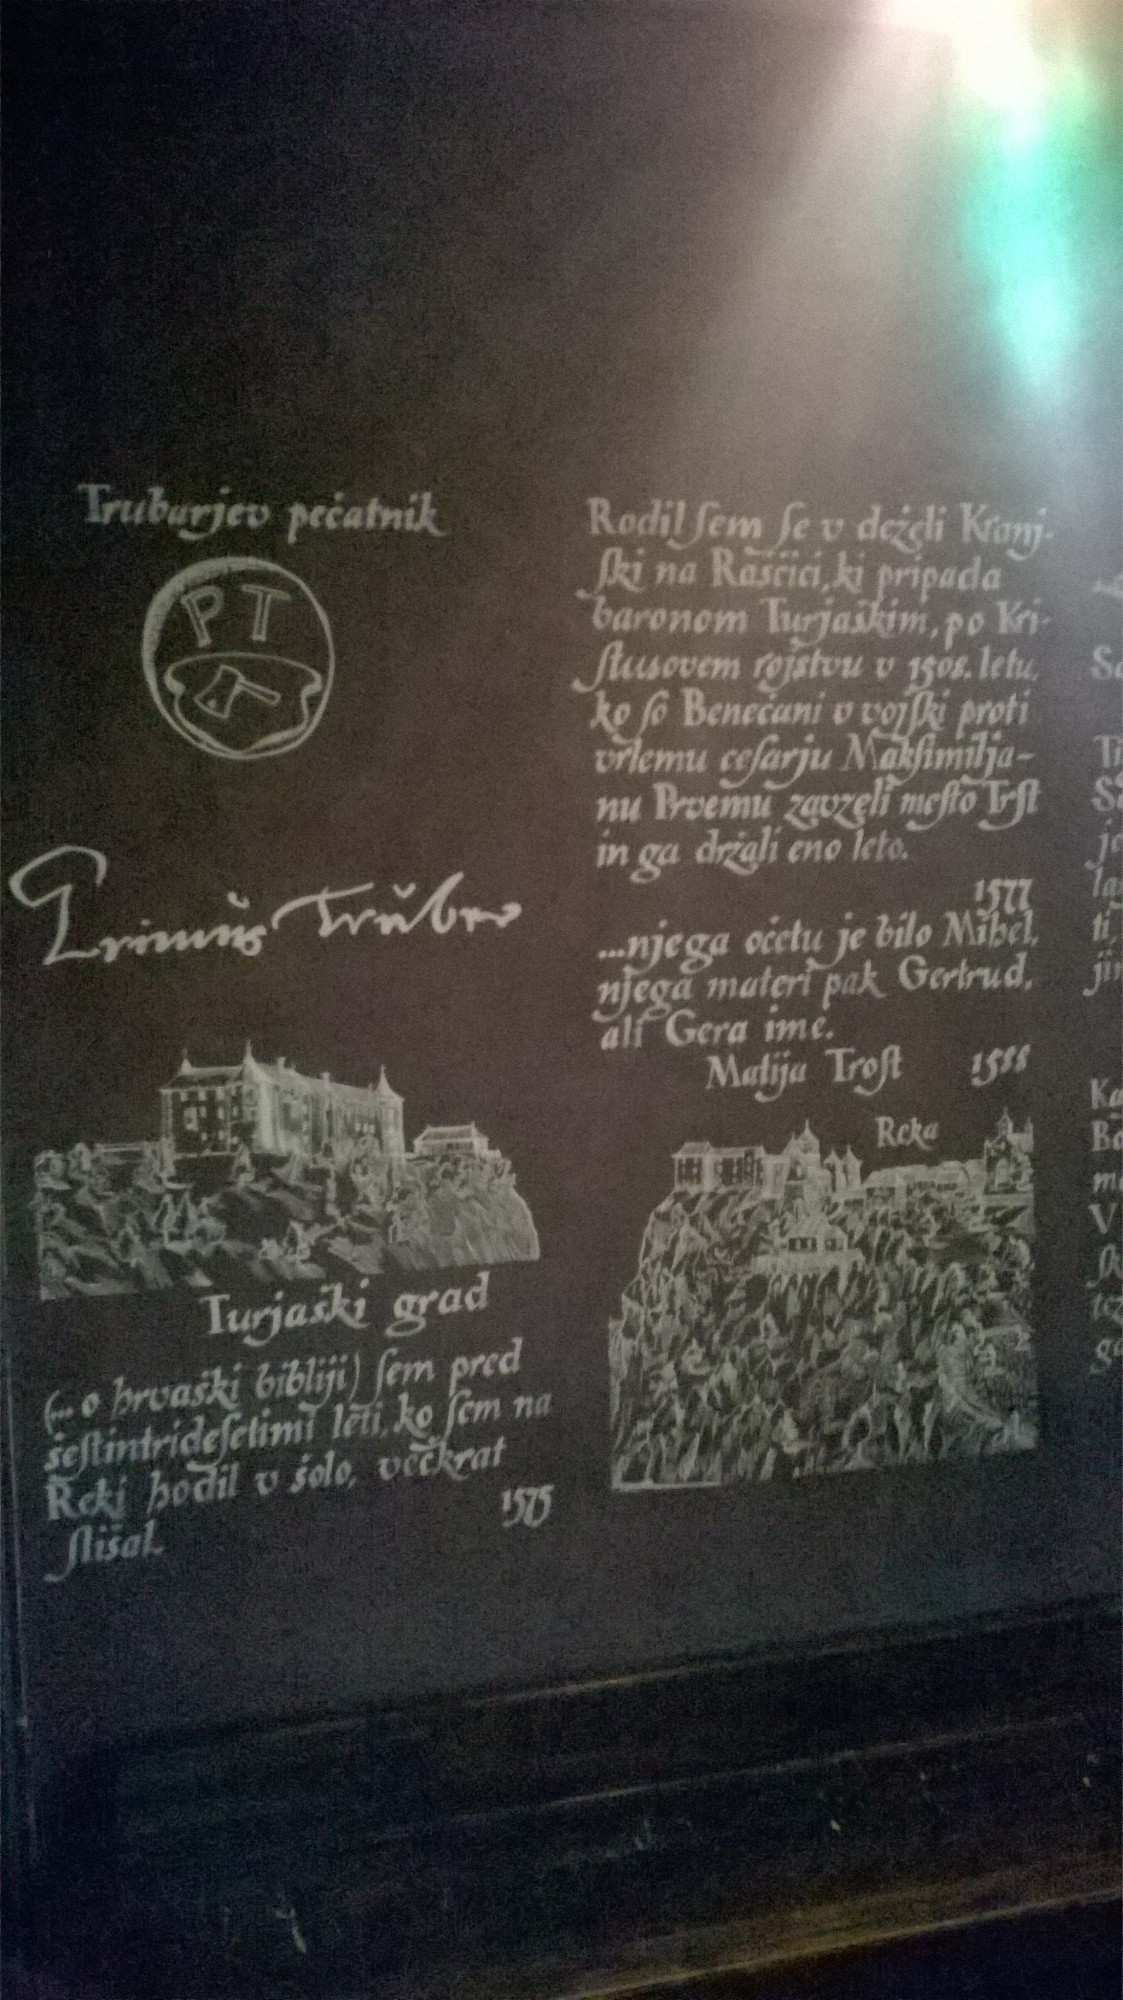 Trubarjev pečatnik
P T
Primus Truber
Turjaški grad
(... o hrvaški bibliji) ſem pred
šeſtintrideſetimi leti, ko ſem na
Reki hodil v šolo, večkrat
ſlišal. 1575
Rodil ſem ſe v deželi Kranj-
ſki na Raščici, ki pripada
baronom Turjaškim, po Kri-
ſtusovem rojstvu v 1508. letu,
ko ſo Benečani v vojſki proti
vrlemu ceſarju Makſimilja-
nu Prvemu zavzeli meſto Trſt
in ga držali eno leto.
1577
...njega očetu je bilo Mihel,
njega materi pak Gertrud,
ali Gera ime.
Matija Troſt 1588
Reka